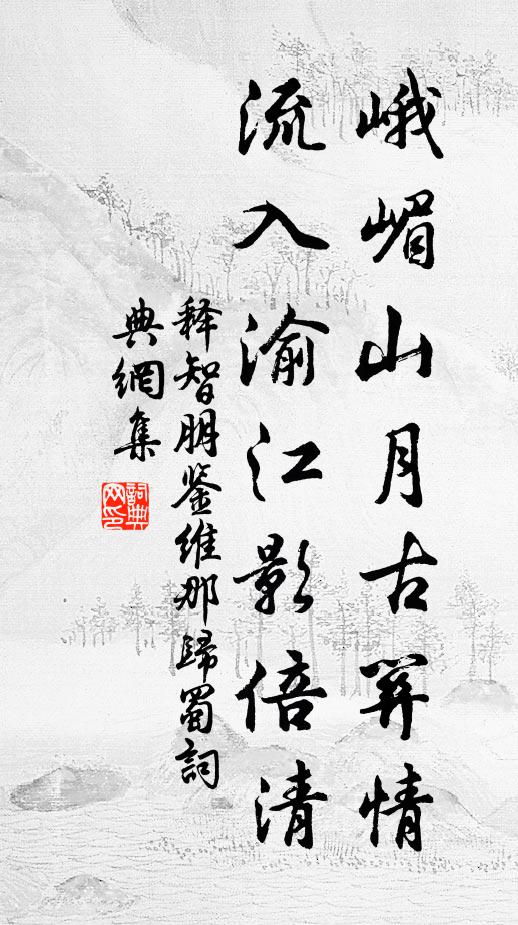 峨嵋山月古関情
流入渝江影倍清
释智朋鉴维那歸蜀詞
典網集
詞典网印